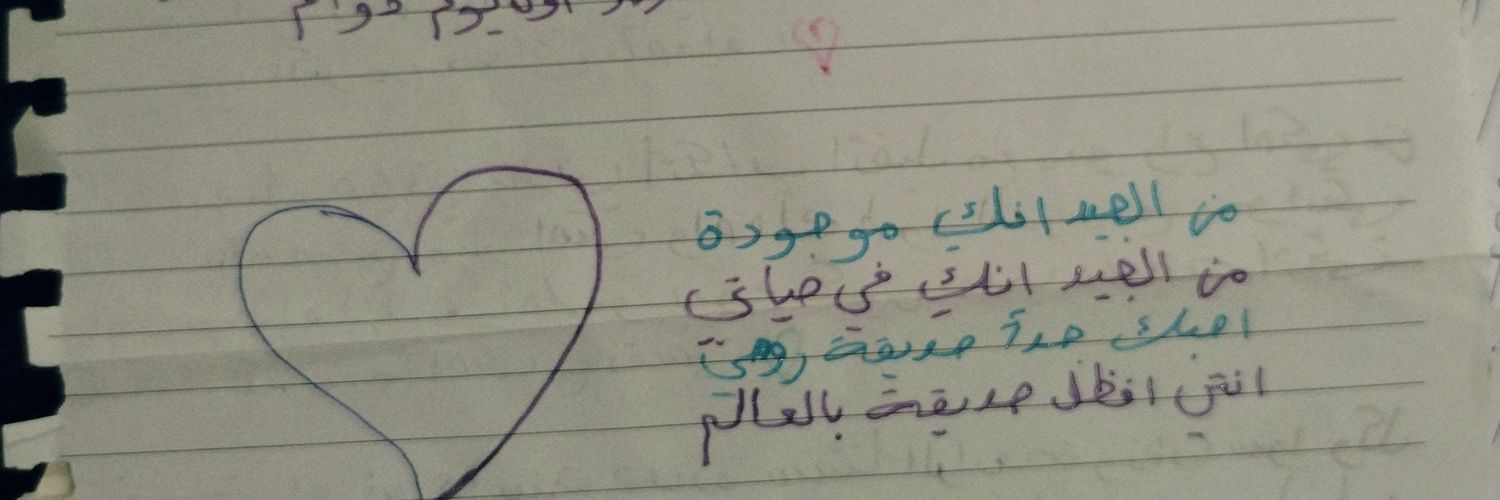 من الجيد انك موجودة
من الجيد انك في حياتي
احبك جداً صديقة روحي
انتي افظل صديقة بالعالم